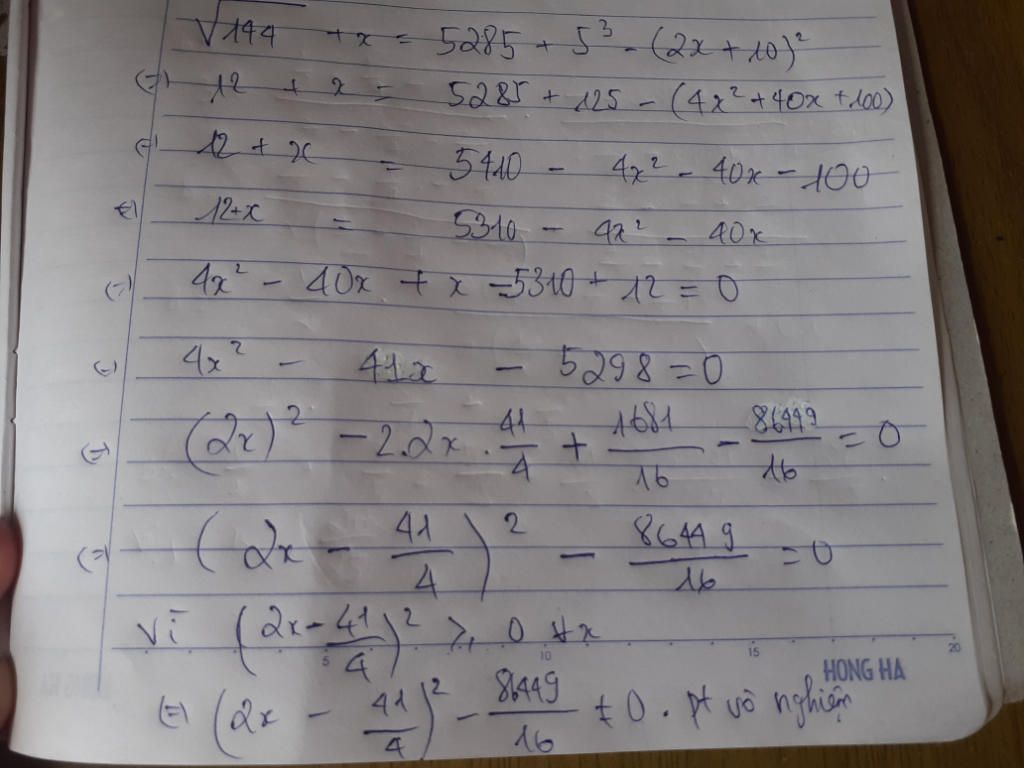 √144 + x = 5285 + 5³ - (2x + 10)²
(=) 12 + x = 5285 + 125 - (4x² + 40x + 100)
(=) 12 + x = 5410 - 4x² - 40x - 100
(=) 12 + x = 5310 - 4x² - 40x
(=) 4x² - 40x + x - 5310 + 12 = 0
(=) 4x² - 41x - 5298 = 0
(=) (2x)² - 2.2x . 41/4 + 1681/16 - 86449/16 = 0
(=) (2x - 41/4)² - 86449/16 = 0
Vì (2x - 41/4)² ≥ 0 ∀x
5 10 15 20
HONG HA
(=) (2x - 41/4)² - 86449/16 ≠ 0 . pt vô nghiệm